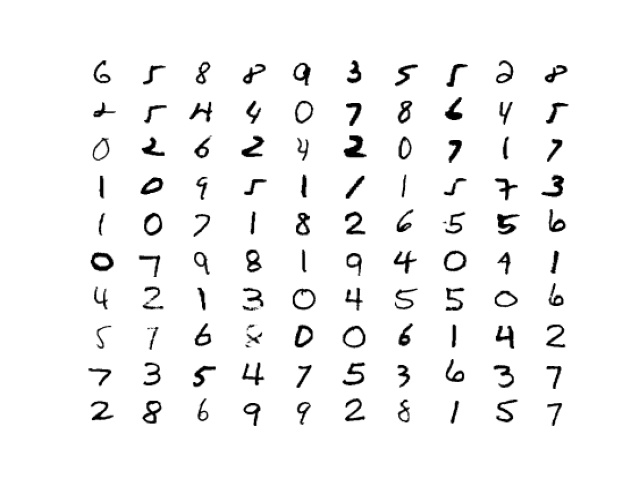 6 5 8 8 9 3 5 5 2 8
2 5 4 4 0 7 8 6 4 5
0 2 6 2 4 2 0 7 1 7
1 0 9 5 1 1 1 5 7 3
1 0 7 1 8 2 6 5 5 6
0 7 9 8 1 9 4 0 9 1
4 2 1 3 0 4 5 5 0 6
5 7 6 8 0 0 6 1 4 2
7 3 5 4 7 5 3 6 3 7
2 8 6 9 9 2 8 1 5 7